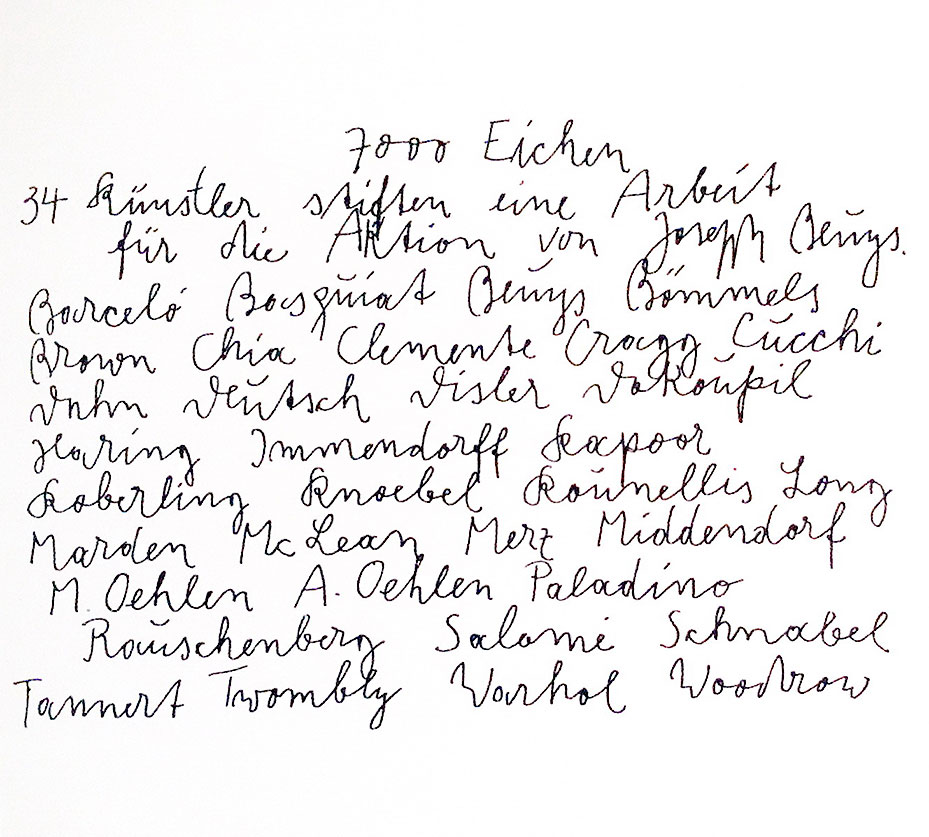 7000 Eichen
34 Künstler stiften eine Arbeit
für die Aktion von Joseph Beuys.
Barceló Basquiat Beuys Bömmels
Brown Chia Clemente Cragg Cucchi
Dahn Deutsch Disler Dokoupil
Haring Immendorff Kapoor
Koberling Knoebel Kounellis Long
Marden McLean Merz Middendorf
M. Oehlen A. Oehlen Paladino
Rauschenberg Salomé Schnabel
Tannert Twombly Warhol Woodrow